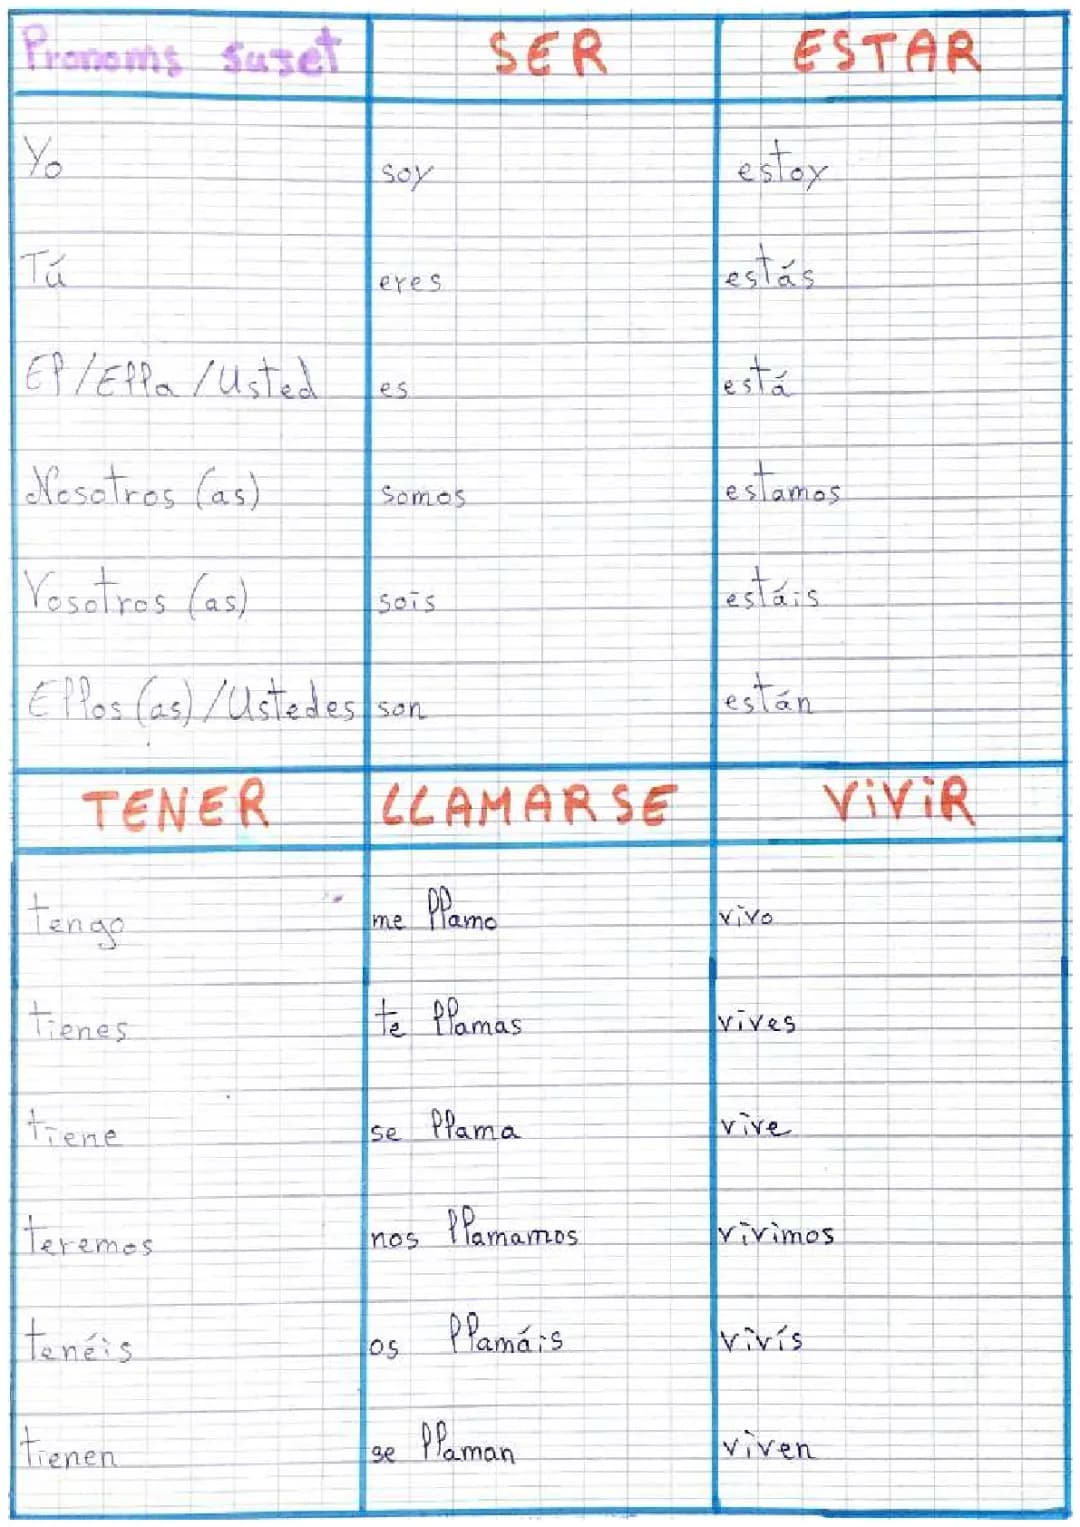 Pronoms sujet SER ESTAR
Yo soy estoy
Tú eres estás
El/Ella/Usted es está
Nosotros (as) somos estamos
Vosotros (as) sois estáis
Ellos (as)/Ustedes son están
TENER LLAMARSE ViViR
tengo me llamo vivo
tienes te llamas vives
tiene se llama vive
teremos nos llamamos vivimos
tenéis os llamáis vivís
tienen se llaman viven